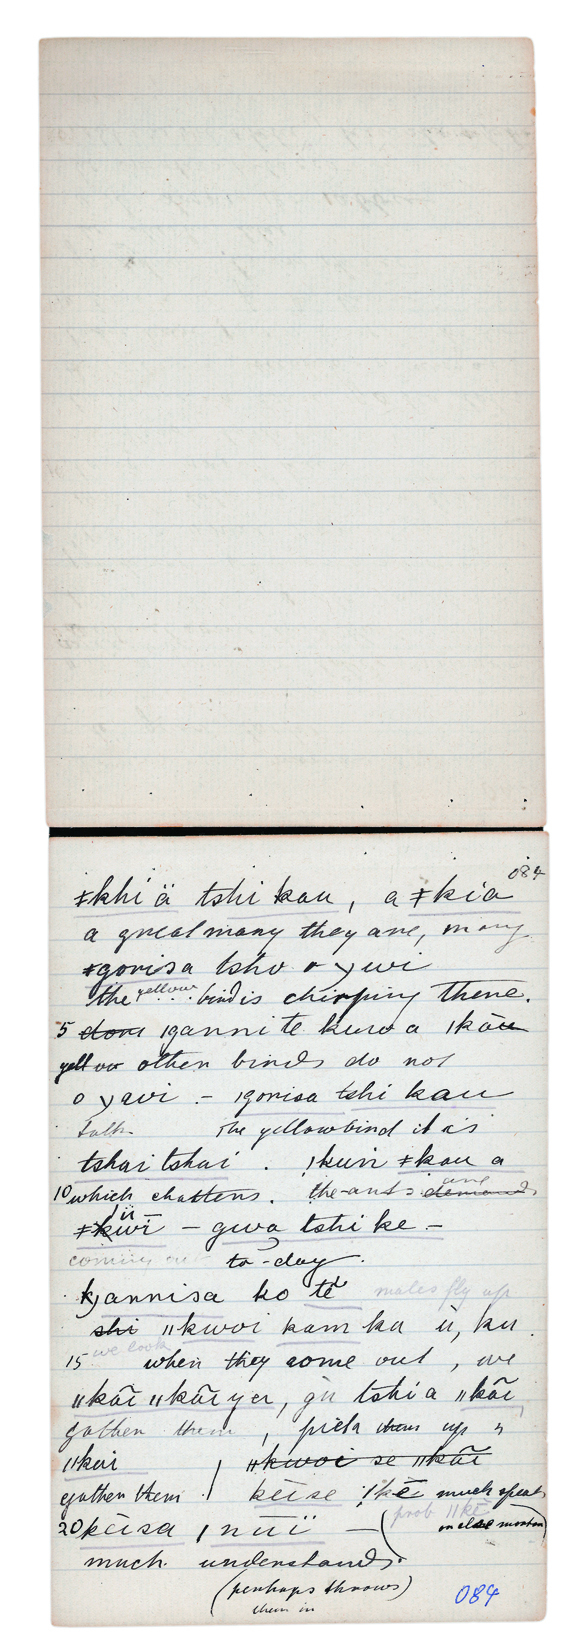 084
ǂkhi ä tshi kau, a ǂkia
a great many they are, many
ǂgorisa tsho o ywi
the yellow bird is chirping there.
5 dou ǀganni te kuwa ǀkāu
yellow other birds do not
o yawi. - ǀgorisa tshi kau
talk. the yellow bird it is
tshai tshai. !kuṅ ǂkau a
are
10 which chattens. the ants demands
ǂkwī - gwa tshi ke -
coming out to-day.
annisa ko tē males fly up
shi ǁkwoi kam ka ù, ku
we look
15 when they come out, we
ǁkāī ǁkāī ya, gu tshi a ǁkāī
gather them, pick them up
ǁkai ǁkwoi se ǁkāī
gather them kēise !kē much speak
prob ǁkē
20 kēisa ǀnūī -
much understands.
(perhaps throws)
them in
084